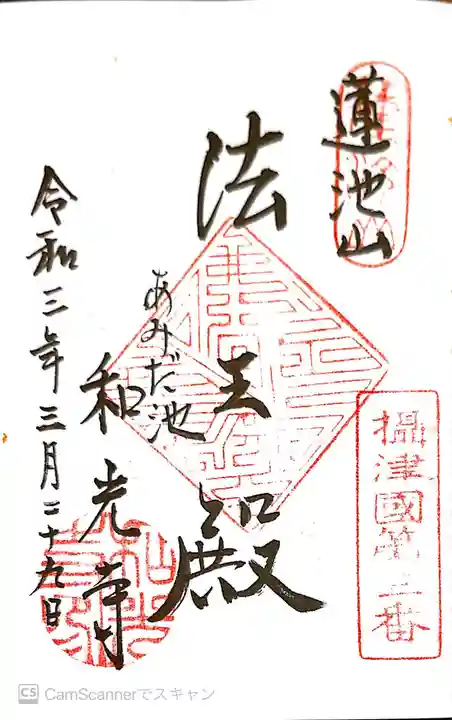 蓮池山
法王殿
あみだ池
和光寺
令和三年三月二十九日
攝津國第三番
CS CamScannerでスキャン